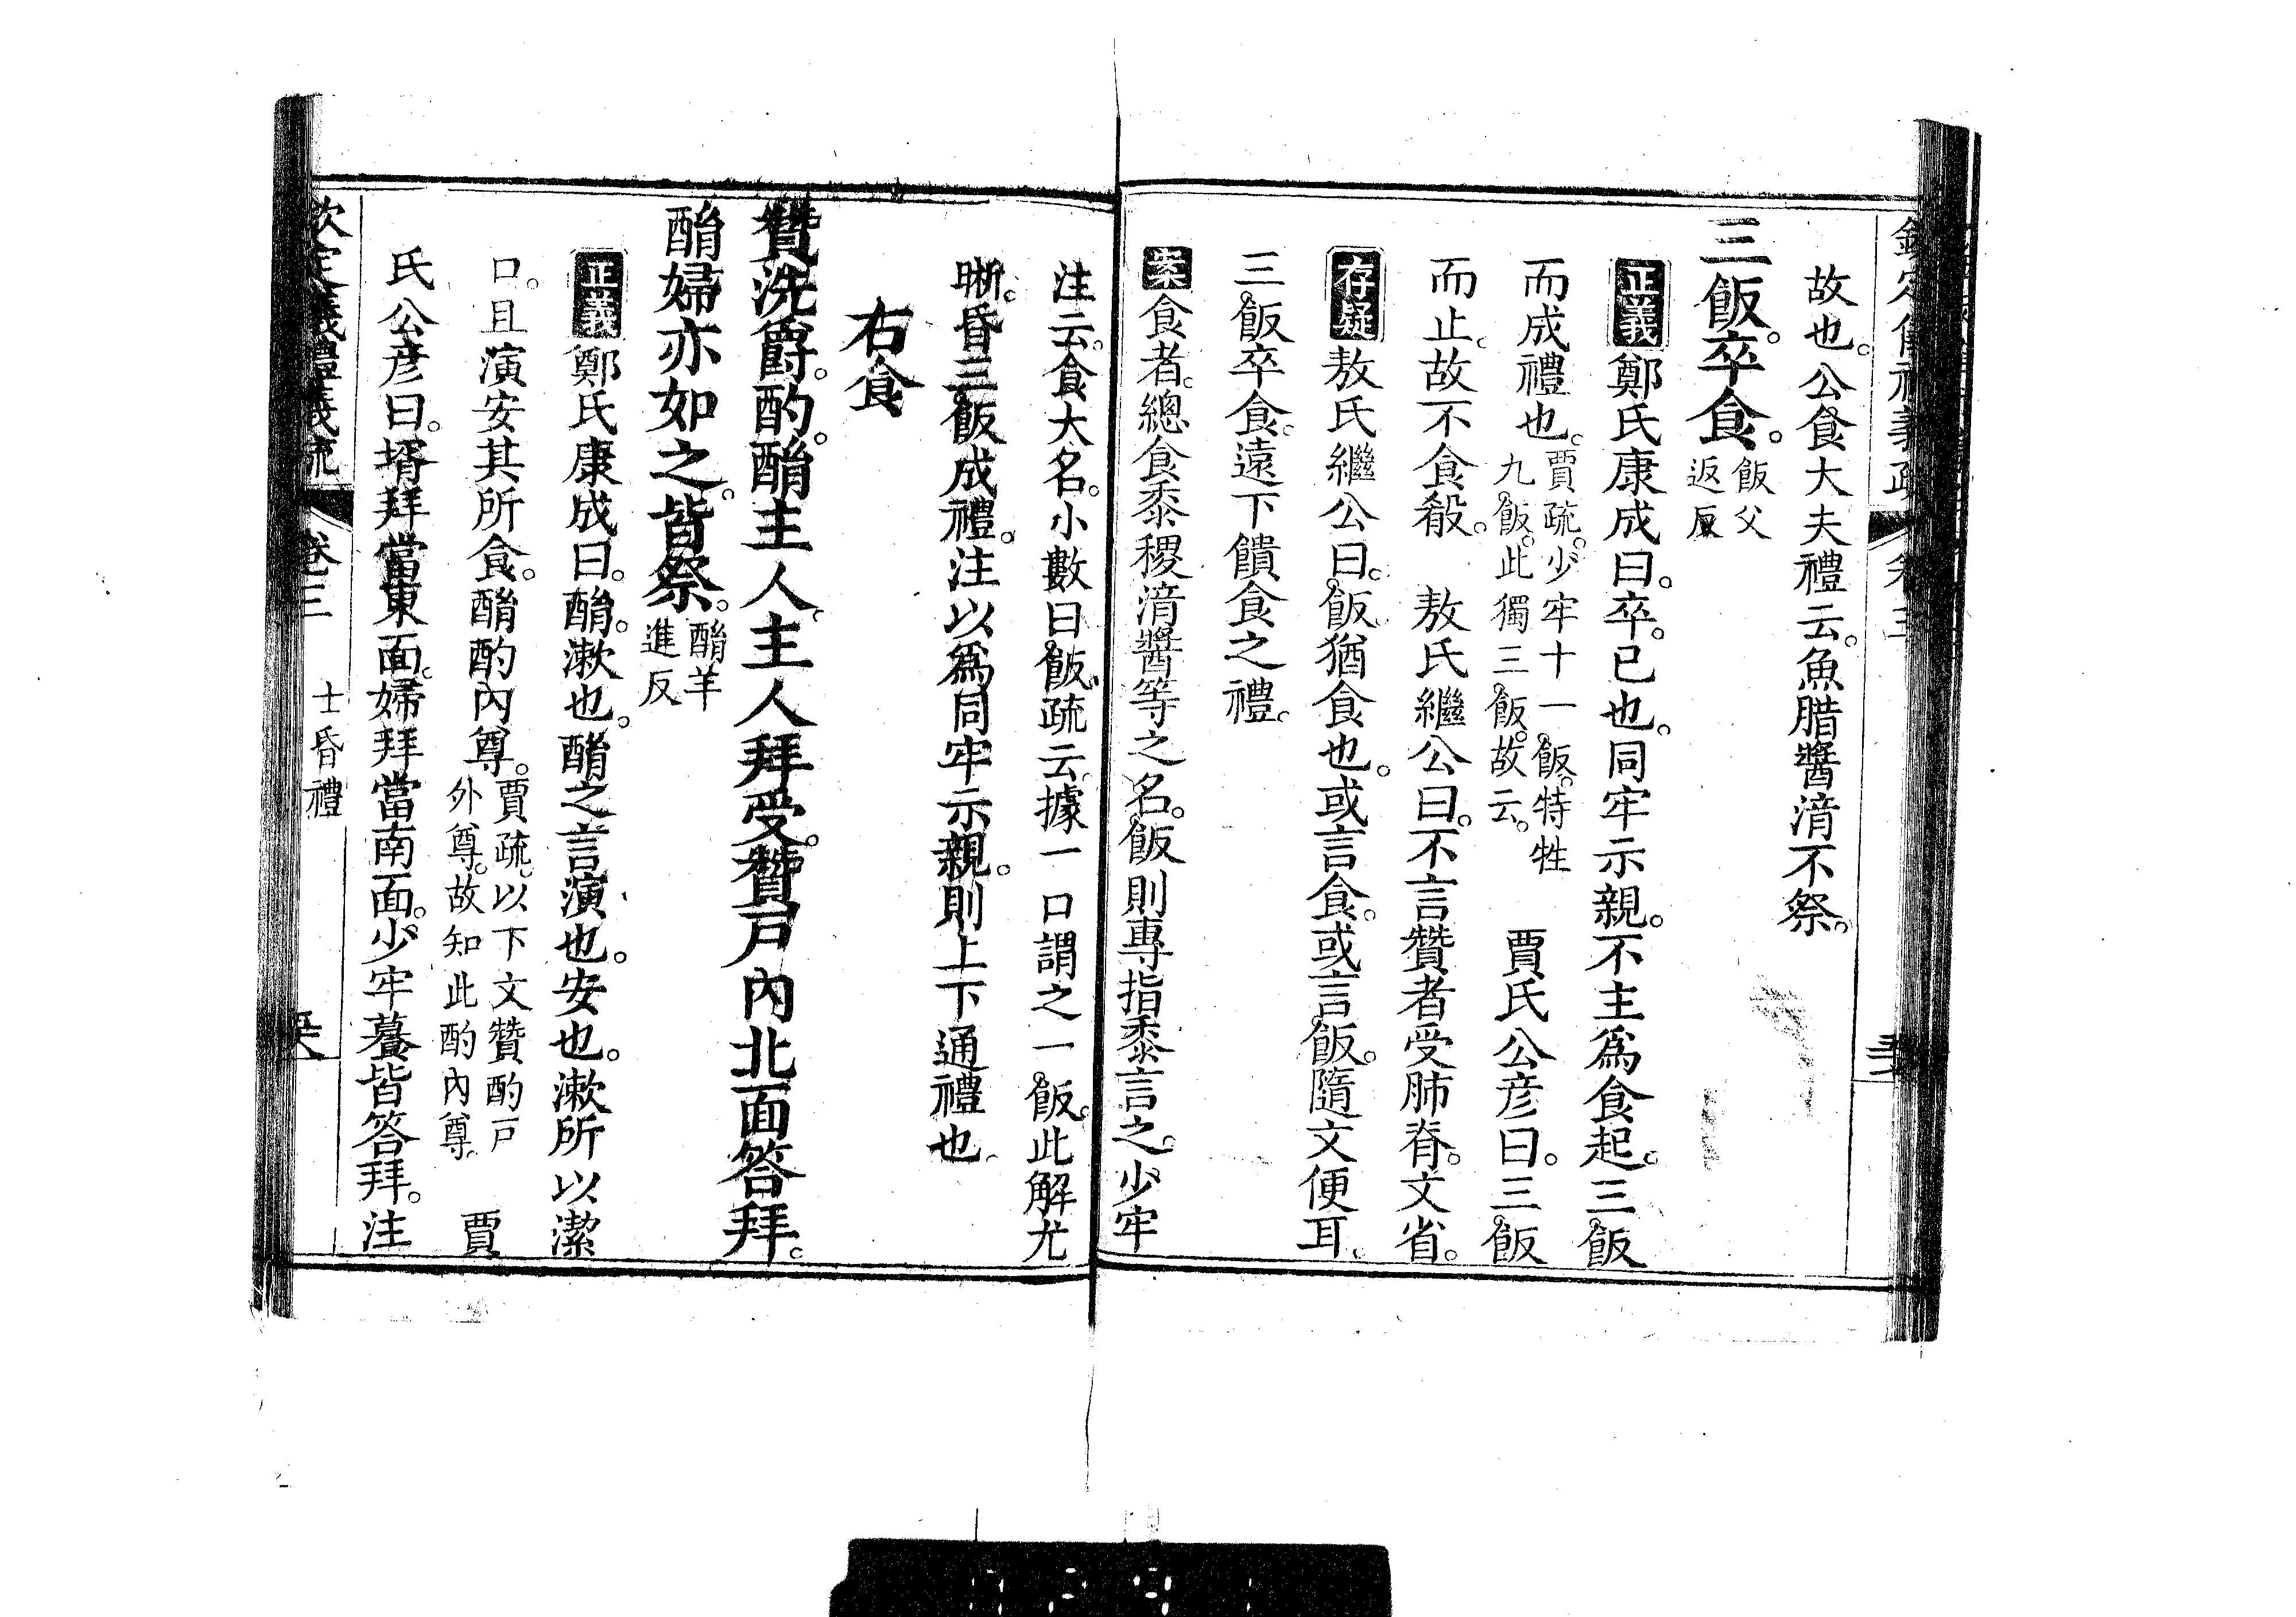 故也。公食大夫禮云。魚腊醬湆不祭。
三飯。卒食。飯父返反
正義鄭氏康成曰。卒。已也。同牢示親。不主爲食起。三飯
而成禮也。賈疏。少牢十一飯。特牲九飯。此獨三飯。故云。 賈氏公彦曰。三飯
而止。故不食殽。 敖氏繼公曰。不言贊者受肺脊。文省。
存疑敖氏繼公曰。飯猶食也。或言食。或言飯。隨文便耳。
三飯卒食。遠下饋食之禮。
案食者。總食黍稷湆醬等之名。飯則專指黍言之。少牢
注云。食大名。小數曰飯。疏云。據一口謂之一飯。此解尤
晣。昏三飯成禮。注以爲同牢示親。則上下通禮也。
右食
贊洗爵。酌。酳主人。主人拜受。贊戸內北面答拜。
酳婦亦如之。皆祭。酳羊進反
正義鄭氏康成曰。酳。漱也。酳之言演也。安也。漱所以潔
口。且演安其所食。酳酌內尊。賈疏。以下文贊酌戸外尊。故知此酌內尊。 賈
氏公彦曰。壻拜當東面。婦拜當南面。少牢養皆答拜。注
欽定儀禮義疏 卷三 士昏禮